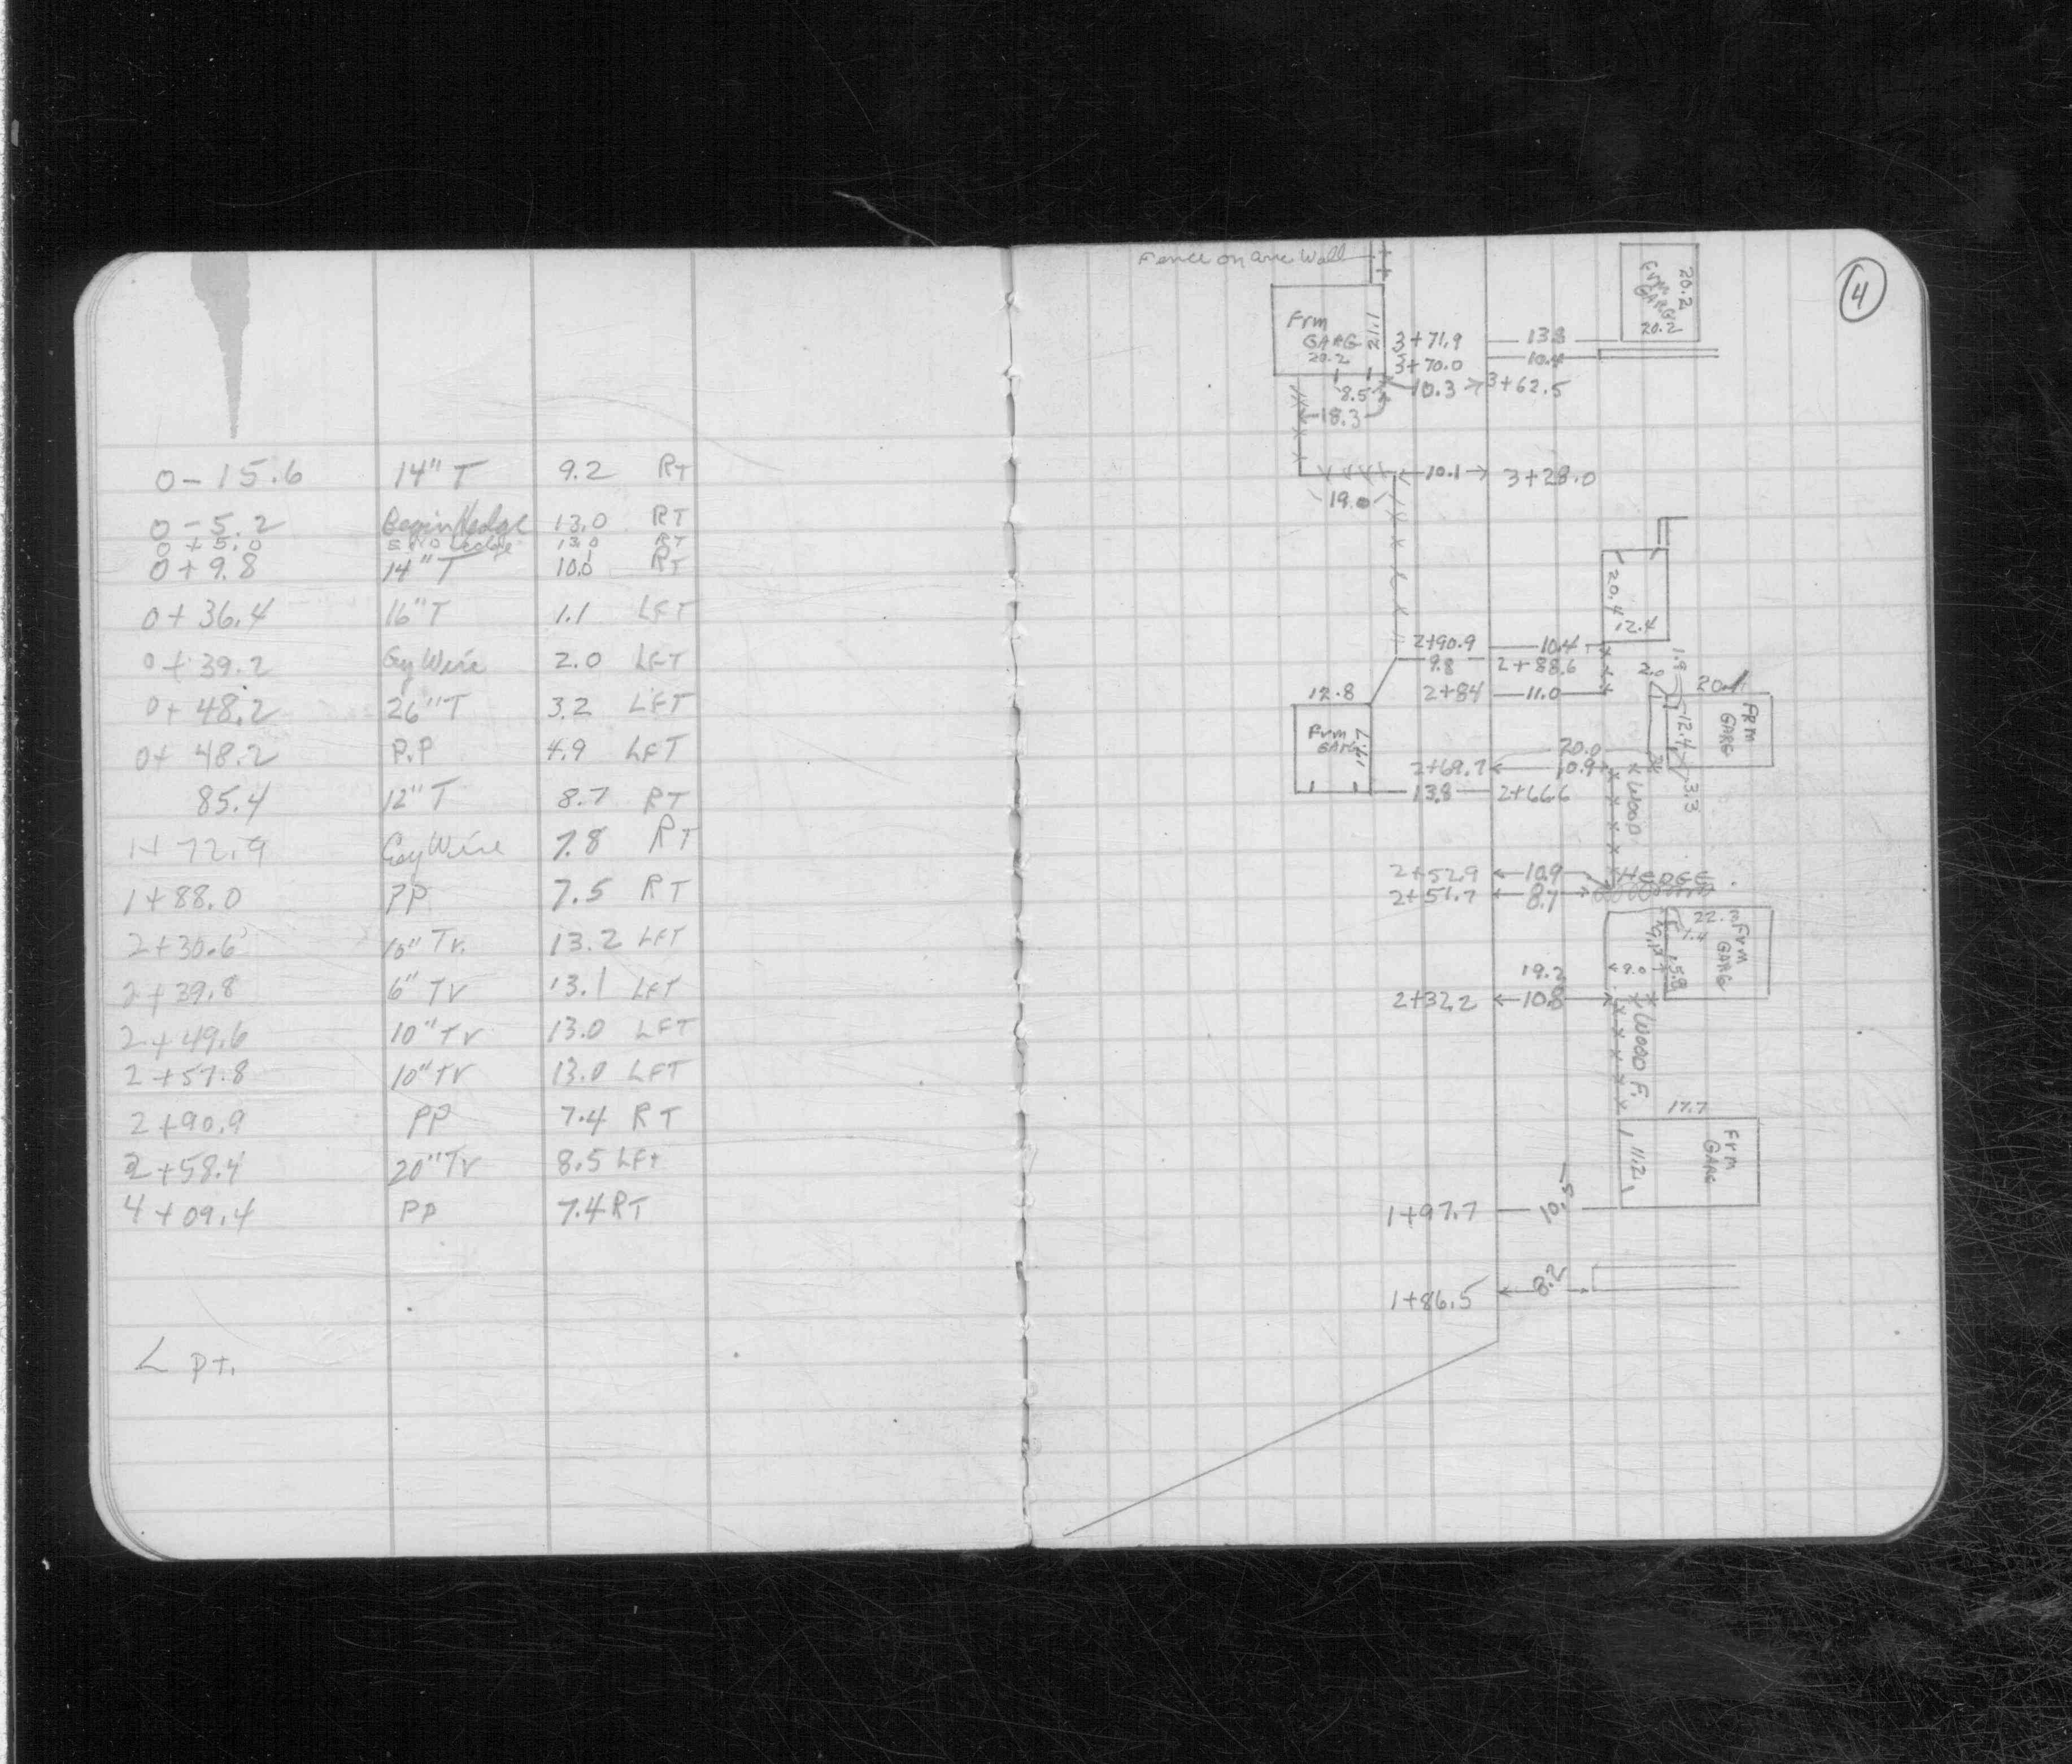 0-15.6 14"T 9.2 RT
0-5.2 Begin Hedge 13.0 RT
0+5.0 END Hedge 13.0 RT
0+9.8 14"T 10.0 RT
0+36.4 16"T 1.1 LFT
0+39.2 Guy Wire 2.0 LFT
0+48.2 26"T 3.2 LFT
0+48.2 P.P 4.9 LFT
85.4 12"T 8.7 RT
1+72.9 Guy Wire 7.8 RT
1+88.0 PP 7.5 RT
2+30.6 10" Tr. 13.2 LFT
2+39.8 6" Tr 13.1 LFT
2+49.6 10" Tr 13.0 LFT
2+57.8 10" Tr 13.0 LFT
2+90.9 PP 7.4 RT
2+58.4 20" Tr 8.5 LFT
4+09.4 PP 7.4 RT
∠ PT.
4
Fence on Wall
Frm GARG 20.2 20.2
Frm GARG 20.2 21.1
3+71.9 13.8
3+70.0 10.4
8.5 10.3 3+62.5
18.3
10.1 3+28.0
19.0
20.4 12.4
2+90.9 10.4
9.8 2+88.6
1.8
2.0
20.1
12.8 2+84 11.0
Frm GARG
12.4 FRM GARG
20.0
2+69.7 10.9
13.8 2+66.6
3.3
WOOD
2+52.9 10.9 HEDGE
2+51.7 8.7
22.3 Frm GARG
1.4
19.2 9.0 15.8
2+32.2 10.8
WOOD F.
17.7
Frm GARG
11.2
1+97.7 10.5
1+86.5 8.2